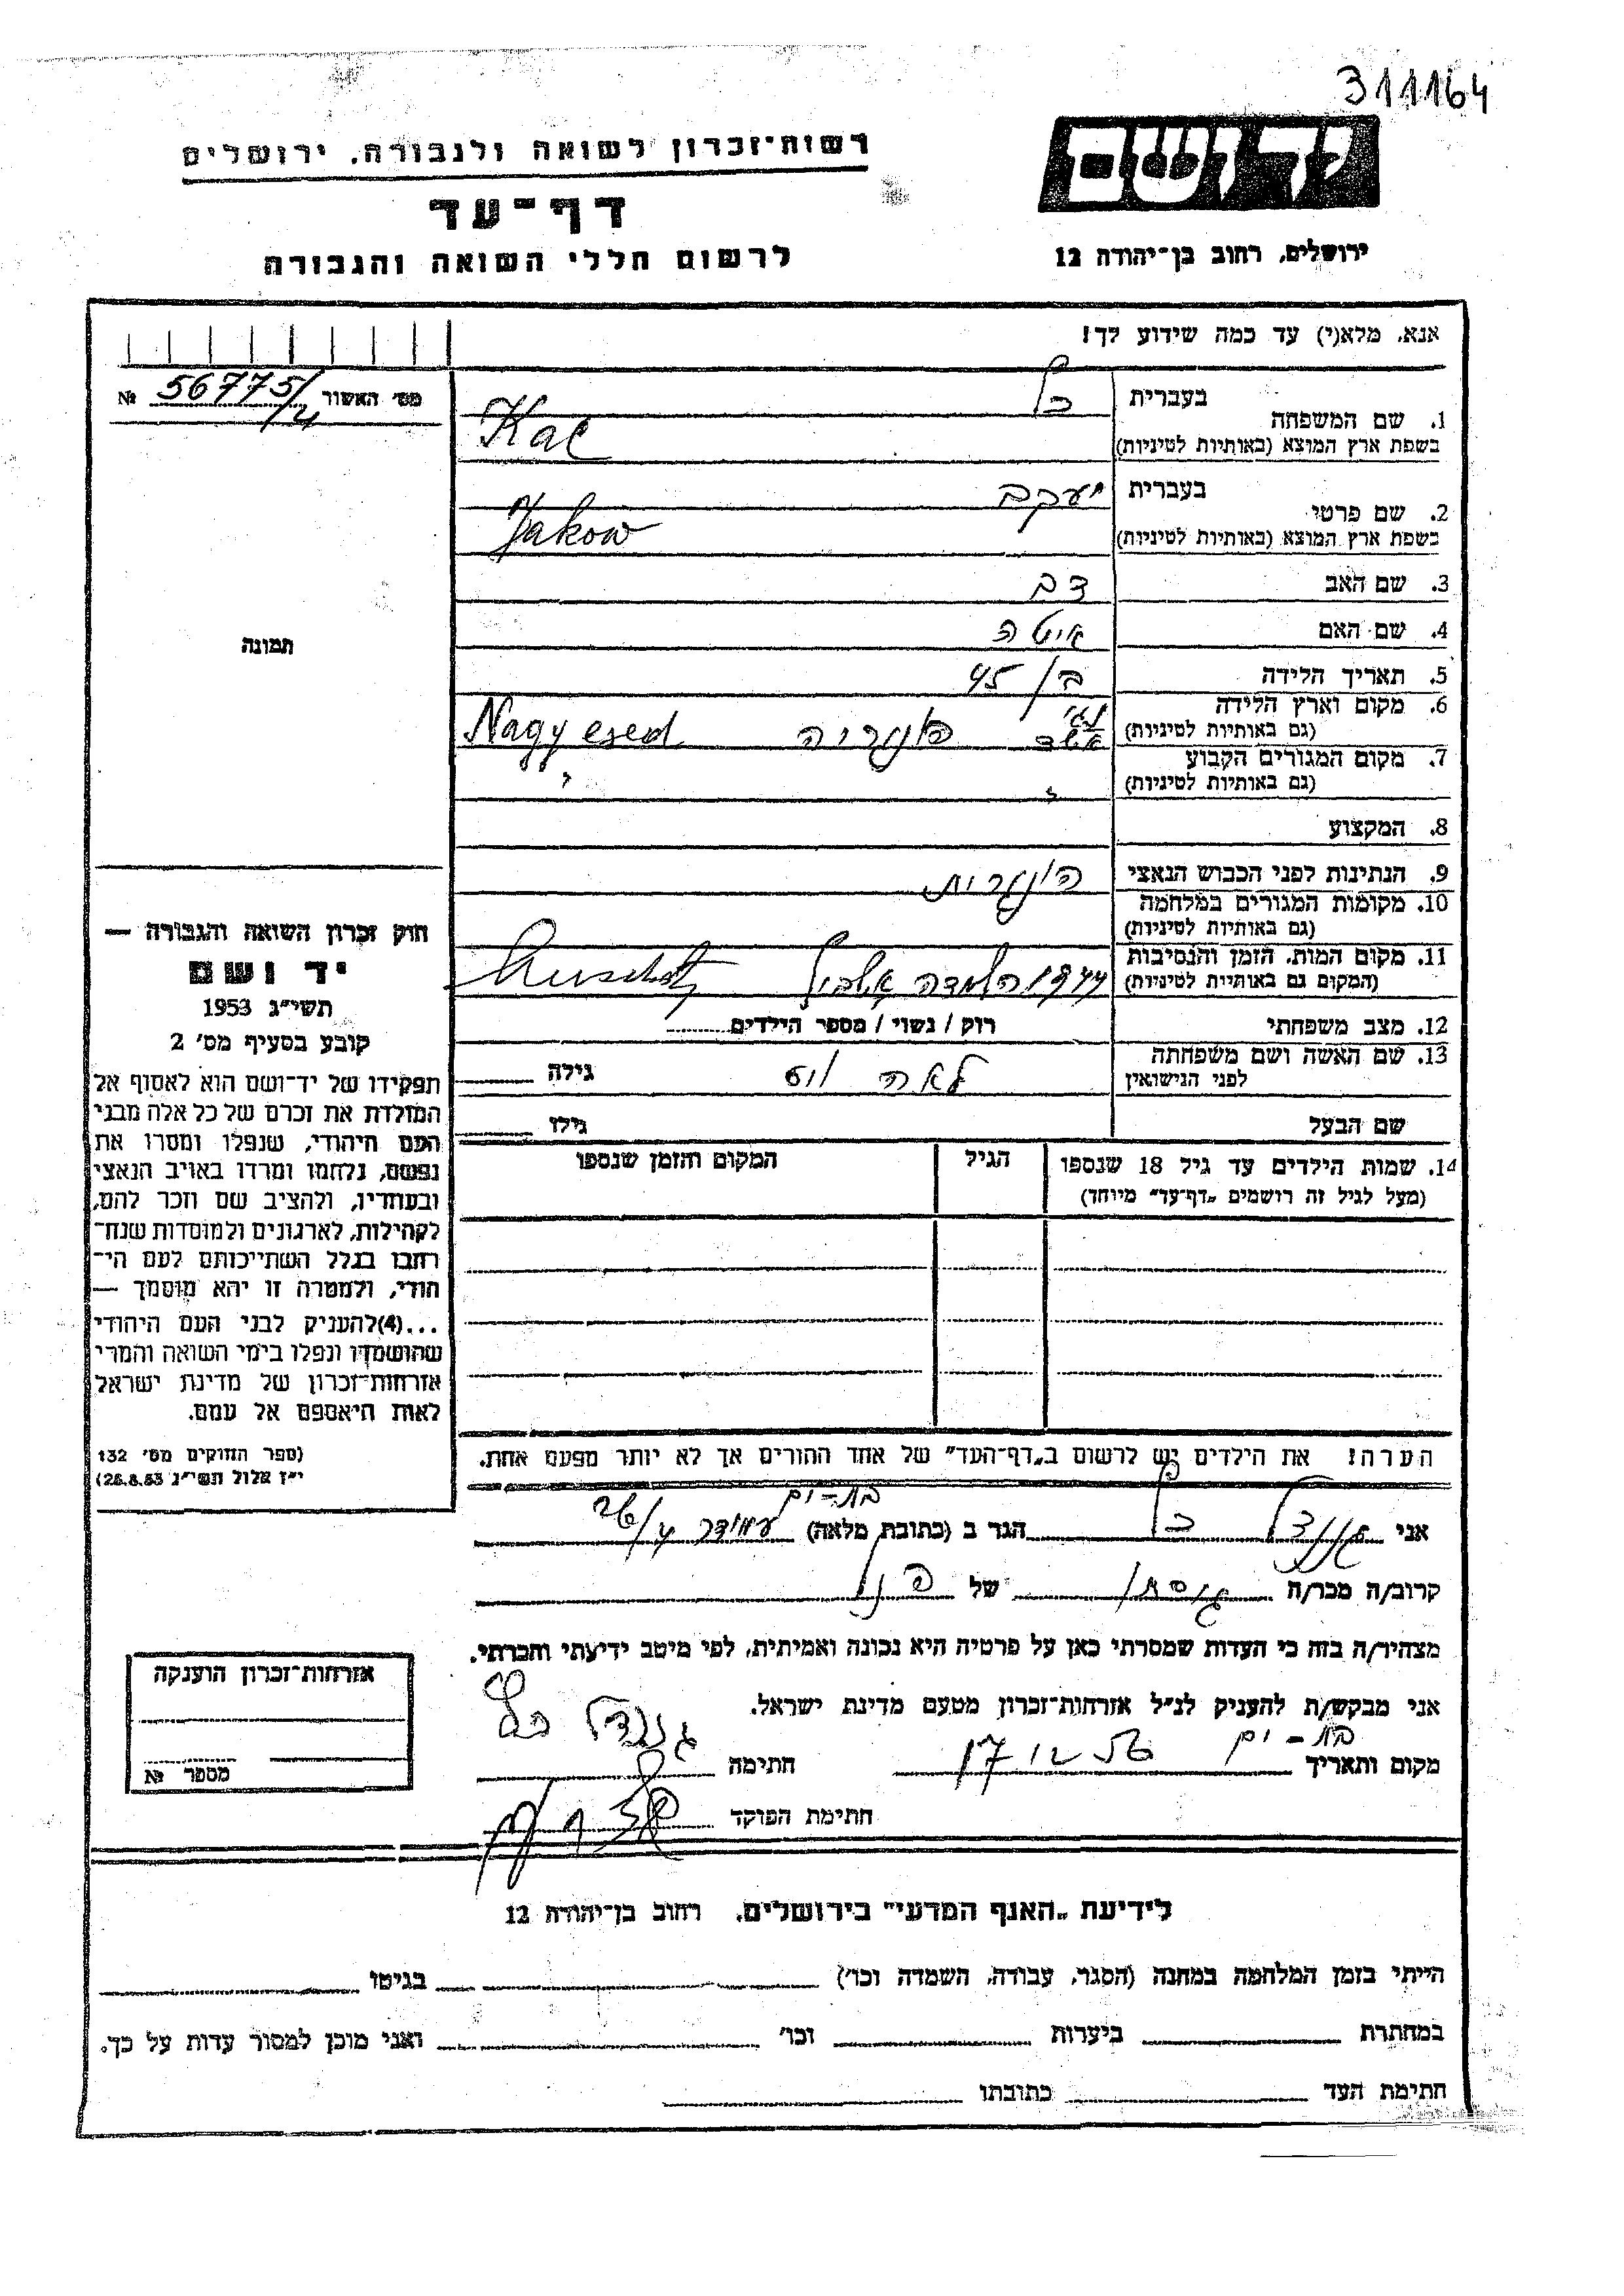 311164
יד ושם
רשות־זכרון לשואה ולגבורה, ירושלים
דף־עד
לרשום חללי השואה והגבורה
ירושלים, רחוב בן־יהודה 12
אנא, מלא(י) עד כמה שידוע לך!
מס׳ האשור № 56775/4
1. שם המשפחה בעברית כץ
בשפת ארץ המוצא (באותיות לטיניות) Kac
2. שם פרטי בעברית יעקב
בשפת ארץ המוצא (באותיות לטיניות) Jakow
3. שם האב דב
4. שם האם איטה
5. תאריך הלידה בן 45
6. מקום וארץ הלידה
(גם באותיות לטיניות) הונגריה Nagy esed
7. מקום המגורים הקבוע
(גם באותיות לטיניות)
8. המקצוע
9. הנתינות לפני הכבוש הנאצי הונגרית
10. מקומות המגורים במלחמה
(גם באותיות לטיניות)
11. מקום המות, הזמן והנסיבות
(המקום גם באותיות לטיניות) 1944 השמדה
12. מצב משפחתי רוק / נשוי / מספר הילדים
13. שם האשה ושם משפחתה
לפני הנישואין לאה גילה
שם הבעל גילו
14. שמות הילדים עד גיל 18 שנספו הגיל המקום והזמן שנספו
(מעל לגיל זה רושמים „דף־עד״ מיוחד)
הערה! את הילדים יש לרשום ב„דף־העד״ של אחד ההורים אך לא יותר מפעם אחת.
תמונה
חוק זכרון השואה והגבורה —
יד ושם
תשי״ג 1953
קובע בסעיף מס׳ 2
תפקידו של יד־ושם הוא לאסוף אל
המולדת את זכרם של כל אלה מבני
העם היהודי, שנפלו ומסרו את
נפשם, נלחמו ומרדו באויב הנאצי
ובעוזריו, ולהציב שם וזכר להם,
לקהילות, לארגונים ולמוסדות שנח־
רבו בגלל השתייכותם לעם הי־
הודי, ולמטרה זו יהא מוסמך —
...(4)להעניק לבני העם היהודי
שהושמדו ונפלו בימי השואה והמרי
אזרחות־זכרון של מדינת ישראל
לאות היאספם אל עמם.
(ספר החוקים מס׳ 132
י״ז אלול תשי״ג 28.8.53)
בת-ים
אני כץ הגר ב (כתובת מלאה)
קרוב/ה מכר/ה של
מצהיר/ה בזה כי העדות שמסרתי כאן על פרטיה היא נכונה ואמיתית, לפי מיטב ידיעתי והכרתי.
אני מבקש/ת להעניק לנ״ל אזרחות־זכרון מטעם מדינת ישראל.
מקום ותאריך בת-ים חתימה כץ
חתימת הפוקד
אזרחות־זכרון הוענקה
מספר №
לידיעת „האגף המדעי״ בירושלים, רחוב בן־יהודה 12
הייתי בזמן המלחמה במחנה (הסגר, עבודה, השמדה וכו׳) בגיטו
במחתרת ביערות וכו׳ ואני מוכן למסור עדות על כך.
חתימת העד כתובתו